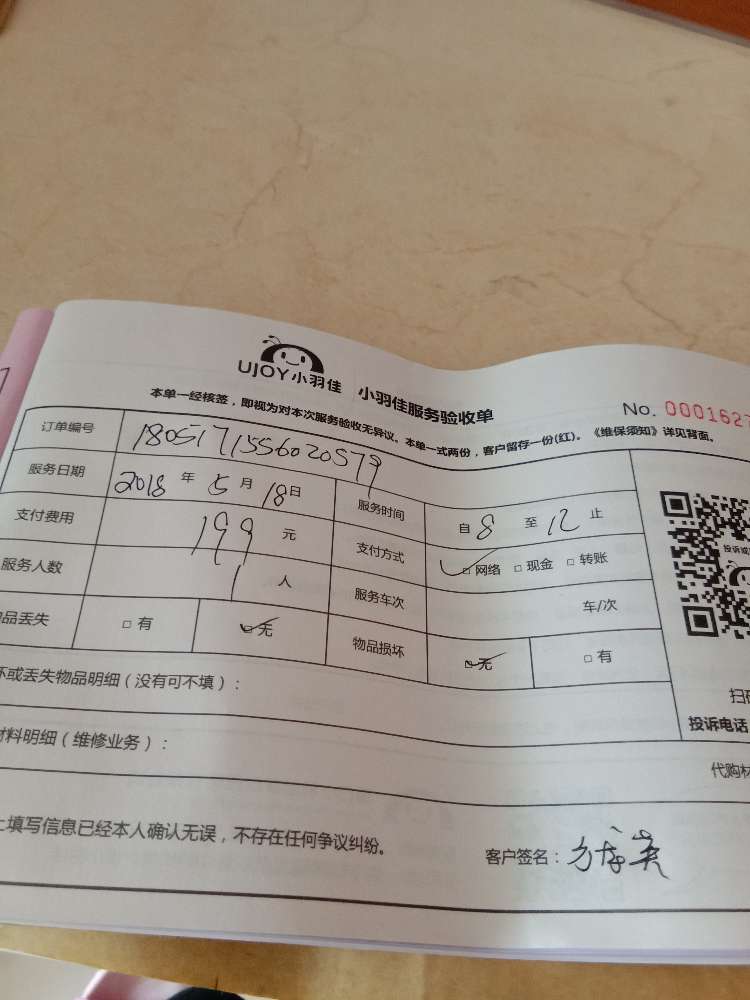 UJOY小羽佳 小羽佳服务验收单
No. 0001627
本单一经核签，即视为对本次服务验收无异议。本单一式两份，客户留存一份(红)。《维保须知》详见背面。
订单编号 1805171556020579
服务日期 2018 年 5 月 18 日 服务时间 自 8 至 12 止
支付费用 199 元 支付方式 ☑网络 □现金 □转账
服务人数 1 人 服务车次 车/次
品丢失 □有 ☑无 物品损坏 ☑无 □有
投诉或
坏或丢失物品明细（没有可不填）：
扫
投诉电话
材料明细（维修业务）：
代购材
上填写信息已经本人确认无误，不存在任何争议纠纷。
客户签名：